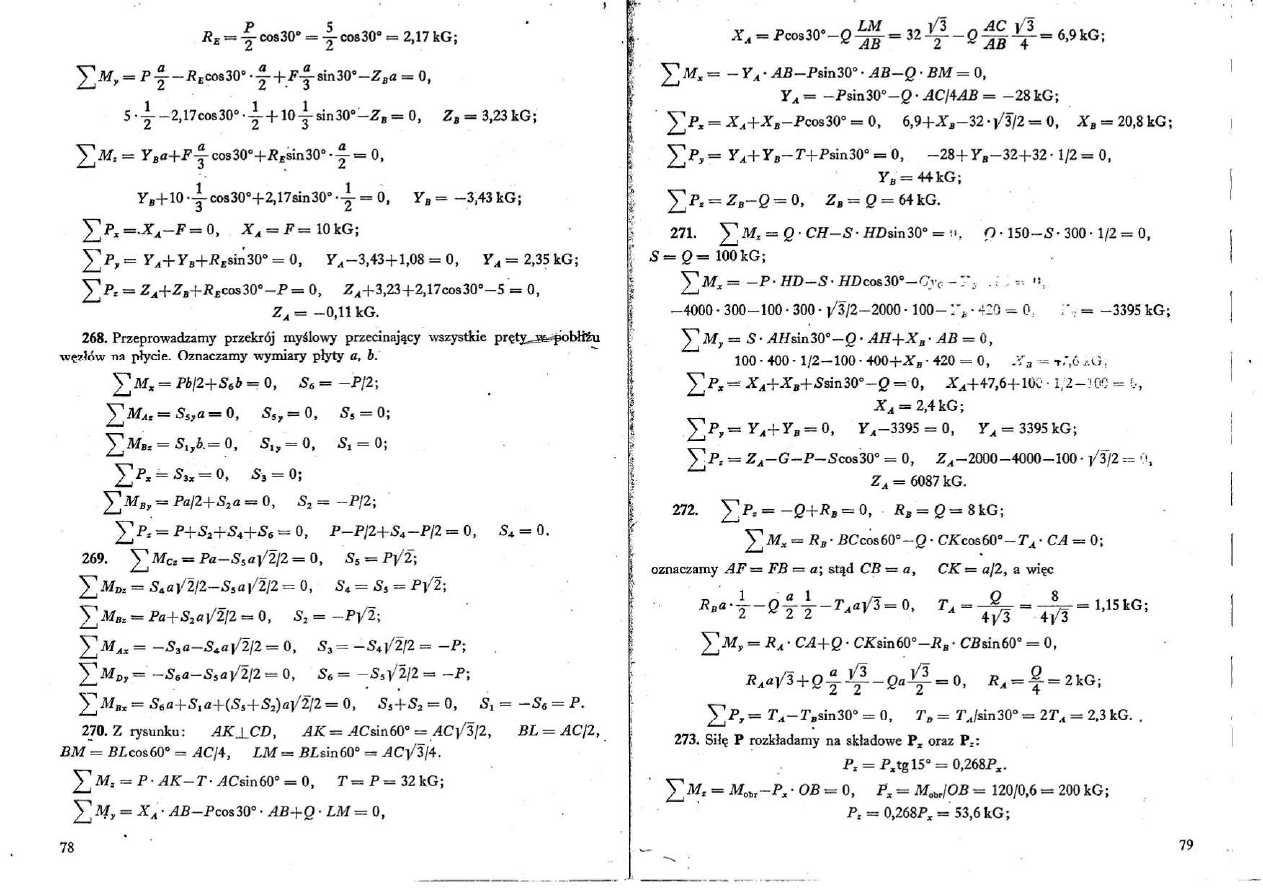 R_E = P/2 cos30° = 5/2 cos30° = 2,17 kG;
∑M_y = P a/2 − R_E cos30° · a/2 + F a/3 sin30° − Z_B a = 0,
5 · 1/2 − 2,17cos30° · 1/2 + 10 1/3 sin30° − Z_B = 0, Z_B = 3,23 kG;
∑M_z = Y_B a + F a/3 cos30° + R_E sin30° · a/2 = 0,
Y_B + 10 · 1/3 cos30° + 2,17sin30° · 1/2 = 0, Y_B = −3,43 kG;
∑P_x = X_A − F = 0, X_A = F = 10 kG;
∑P_y = Y_A + Y_B + R_E sin30° = 0, Y_A − 3,43 + 1,08 = 0, Y_A = 2,35 kG;
∑P_z = Z_A + Z_B + R_E cos30° − P = 0, Z_A + 3,23 + 2,17cos30° − 5 = 0,
Z_A = −0,11 kG.
268. Przeprowadzamy przekrój myślowy przecinający wszystkie pręty w pobliżu
węzłów na płycie. Oznaczamy wymiary płyty a, b.
∑M_x = Pb/2 + S₆b = 0, S₆ = −P/2;
∑M_Az = S₅ᵧa = 0, S₅ᵧ = 0, S₅ = 0;
∑M_Bz = S₁ᵧb = 0, S₁ᵧ = 0, S₁ = 0;
∑P_x = S₃ₓ = 0, S₃ = 0;
∑M_By = Pa/2 + S₂a = 0, S₂ = −P/2;
∑P_z = P + S₂ + S₄ + S₆ = 0, P − P/2 + S₄ − P/2 = 0, S₄ = 0.
269. ∑M_Cz = Pa − S₅a√2/2 = 0, S₅ = P√2;
∑M_Dz = S₄a√2/2 − S₅a√2/2 = 0, S₄ = S₅ = P√2;
∑M_Bz = Pa + S₂a√2/2 = 0, S₂ = −P√2;
∑M_Ax = −S₃a − S₄a√2/2 = 0, S₃ = −S₄√2/2 = −P;
∑M_Dy = −S₆a − S₅a√2/2 = 0, S₆ = −S₅√2/2 = −P;
∑M_Bx = S₆a + S₁a + (S₅ + S₂)a√2/2 = 0, S₅ + S₂ = 0, S₁ = −S₆ = P.
270. Z rysunku: AK⊥CD, AK = ACsin60° = AC√3/2, BL = AC/2,
BM = BLcos60° = AC/4, LM = BLsin60° = AC√3/4.
∑M_z = P · AK − T · ACsin60° = 0, T = P = 32 kG;
∑M_y = X_A · AB − Pcos30° · AB + Q · LM = 0,
78
X_A = Pcos30° − Q LM/AB = 32 √3/2 − Q AC/AB √3/4 = 6,9 kG;
∑M_x = −Y_A · AB − Psin30° · AB − Q · BM = 0,
Y_A = −Psin30° − Q · AC/4AB = −28 kG;
∑P_x = X_A + X_B − Pcos30° = 0, 6,9 + X_B − 32 · √3/2 = 0, X_B = 20,8 kG;
∑P_y = Y_A + Y_B − T + Psin30° = 0, −28 + Y_B − 32 + 32 · 1/2 = 0,
Y_B = 44 kG;
∑P_z = Z_B − Q = 0, Z_B = Q = 64 kG.
271. ∑M_z = Q · CH − S · HDsin30° = 0, Q · 150 − S · 300 · 1/2 = 0,
S = Q = 100 kG;
∑M_x = −P · HD − S · HDcos30° −
−4000 · 300 − 100 · 300 · √3/2 − 2000 · 100 − · 420 = 0, = −3395 kG;
∑M_y = S · AHsin30° − Q · AH + X_B · AB = 0,
100 · 400 · 1/2 − 100 · 400 + X_B · 420 = 0,
∑P_x = X_A + X_B + Ssin30° − Q = 0, X_A + 47,6 + 100 · 1/2 − 100 = 0,
X_A = 2,4 kG;
∑P_y = Y_A + Y_B = 0, Y_A − 3395 = 0, Y_A = 3395 kG;
∑P_z = Z_A − G − P − Scos30° = 0, Z_A − 2000 − 4000 − 100 · √3/2 = 0,
Z_A = 6087 kG.
272. ∑P_z = −Q + R_B = 0, R_B = Q = 8 kG;
∑M_x = R_B · BCcos60° − Q · CKcos60° − T_A · CA = 0;
oznaczamy AF = FB = a; stąd CB = a, CK = a/2, a więc
R_B a · 1/2 − Q a/2 1/2 − T_A a√3 = 0, T_A = Q/4√3 = 8/4√3 = 1,15 kG;
∑M_y = R_A · CA + Q · CKsin60° − R_B · CBsin60° = 0,
R_A a√3 + Q a/2 √3/2 − Qa √3/2 = 0, R_A = Q/4 = 2 kG;
∑P_y = T_A − T_B sin30° = 0, T_B = T_A/sin30° = 2T_A = 2,3 kG.
273. Siłę P rozkładamy na składowe Pₓ oraz P_z:
P_z = Pₓtg15° = 0,268Pₓ.
∑M_z = M_obr − Pₓ · OB = 0, Pₓ = M_obr/OB = 120/0,6 = 200 kG;
P_z = 0,268Pₓ = 53,6 kG;
79